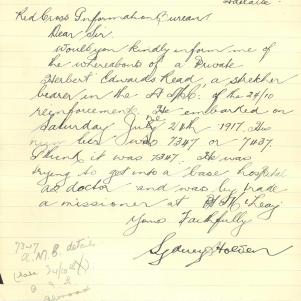 Adelaide
Red Cross Information Bureau
Dear Sir
Would you kindly inform me of
the whereabouts of a Private
Herbert Edwards Read, a stretcher
bearer in the of the 24/10
reinforcement. He embarked on
Saturday 1917. His
number was 7347 or 7437.
I think it was 7347. He was
trying to get into a base hospital
as doctor and was by trade
a missioner at
Yours Faithfully
Sydney Holden
7347
A.M.B. details